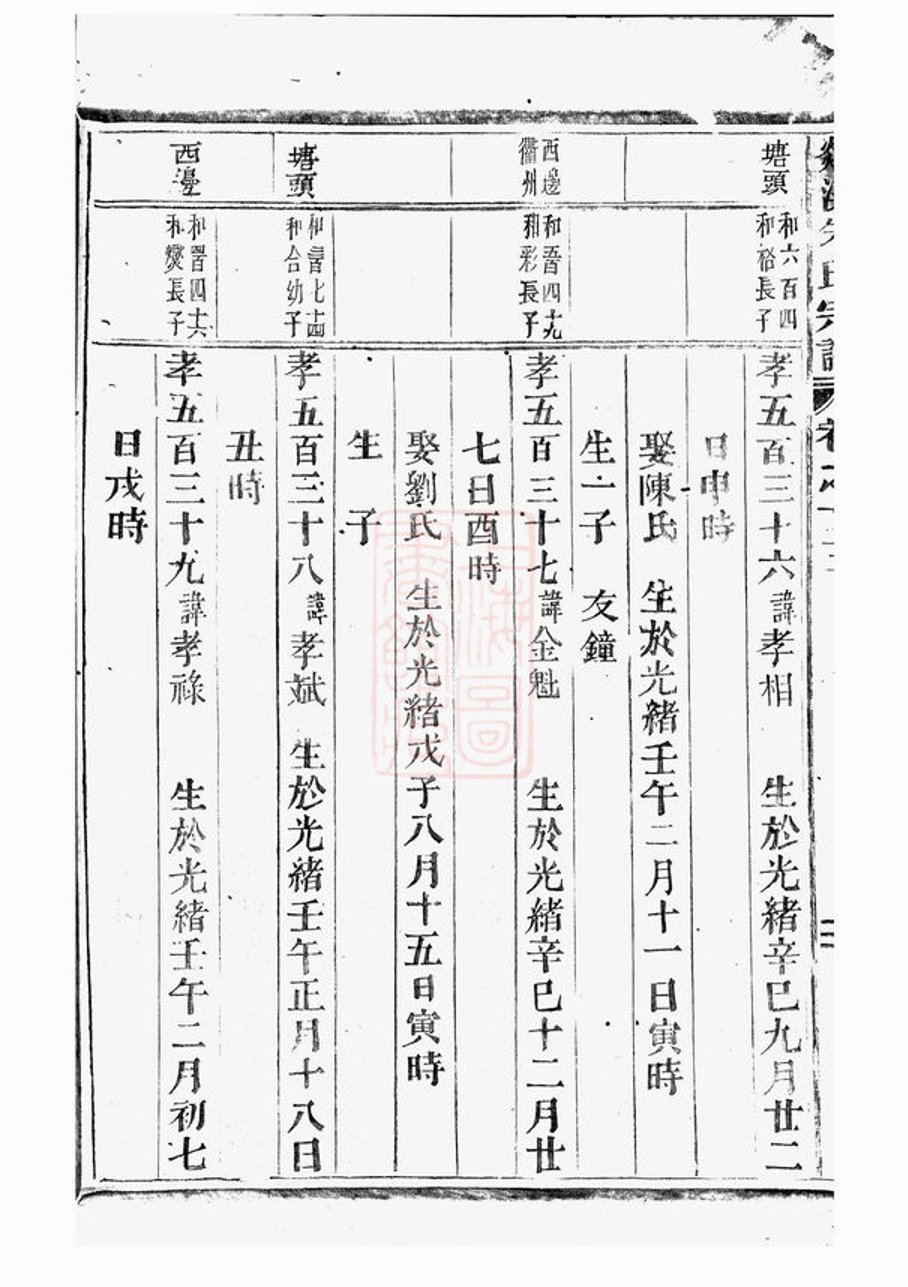 塘頭
和六百四
和裕長子
孝五百三十六諱孝相 生於光緒辛巳九月廿二
日申時
娶陳氏 生於光緒壬午二月十一日寅時
生一子 友鐘
西邊
衢州
和晋四十九
和彩長子
孝五百三十七諱金魁 生於光緒辛巳十二月廿
七日酉時
娶劉氏 生於光緒戊子八月十五日寅時
生 子
塘頭
和晋七十四
和合幼子
孝五百三十八諱孝斌 生於光緒壬午正月十八日
丑時
西邊
和晋四十六
和燮長子
孝五百三十九諱孝祿 生於光緒壬午二月初七
日戌時